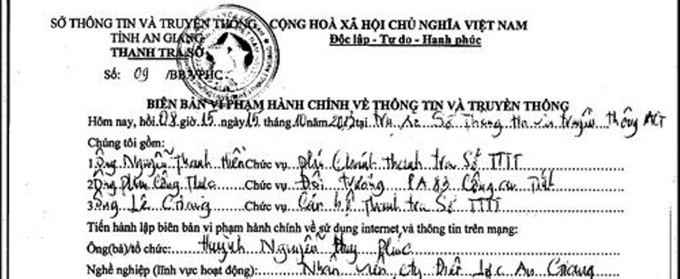 SỞ THÔNG TIN VÀ TRUYỀN THÔNG CỘNG HOÀ XÃ HỘI CHỦ NGHĨA VIỆT NAM
TỈNH AN GIANG Độc lập - Tự do - Hạnh phúc
THANH TRA SỞ
Số: 09 /BB-VPHC
BIÊN BẢN VI PHẠM HÀNH CHÍNH VỀ THÔNG TIN VÀ TRUYỀN THÔNG
Hôm nay, hồi 08 giờ 15 ngày 15 tháng 10 năm 2013 tại Trụ sở Sở Thông tin và truyền thông
Chúng tôi gồm:
1. Ông Nguyễn Thanh Hiền Chức vụ Phó Chánh thanh tra Sở TTTT
2. Ông Phạm Công Chức vụ Đội trưởng PA 83 Công an
3. Ông Lê Chức vụ Cán bộ Thanh tra Sở TTTT
Tiến hành lập biên bản vi phạm hành chính về sử dụng internet và thông tin trên mạng:
Ông(bà)/tổ chức: Huỳnh Nguyễn Huy Phúc
Nghề nghiệp (lĩnh vực hoạt động): Nhân viên cty Điện lực An Giang